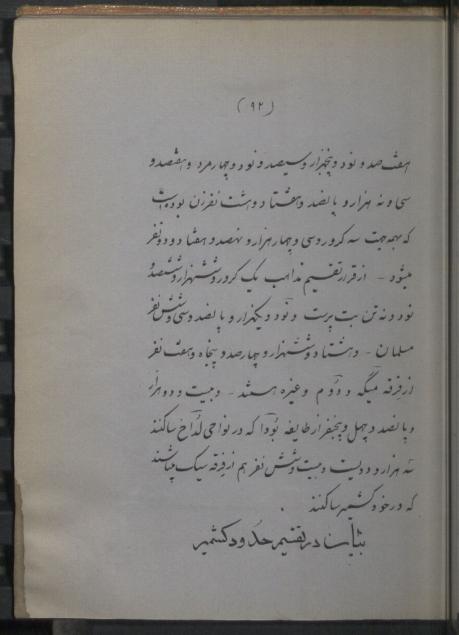 (۹۲)
هفتصد و نود و پنجهزار و سیصد و نود و چهار مرد و هفتصد و
سی و نه هزار و پانصد و هفتاد و هشت نفر زن بوده است
که بهمه جهت سه کرور و سی و چهار هزار و نهصد و هفتاد و دو نفر
میشود - از قرار تقسیم مذاهب یک کرور و ششهزار و ششصد و
نود و نه تن بت پرست و نود و یکهزار و پانصد و سی و شش نفر
مسلمان - و هشتاد و ششهزار و چهارصد و پنجاه و هفت نفر
از فرقه میگه و دوم و غیره هستند - و بیست و دو هزار
و پانصد و چهل و پنجنفر از طایفه بودا که در نواحی لداخ ساکنند
سه هزار و دویست و بیست و شش نفر هم از فرقه سیک میباشند
که در خود کشمیر ساکنند
بیان در تقسیم حدود کشمیر